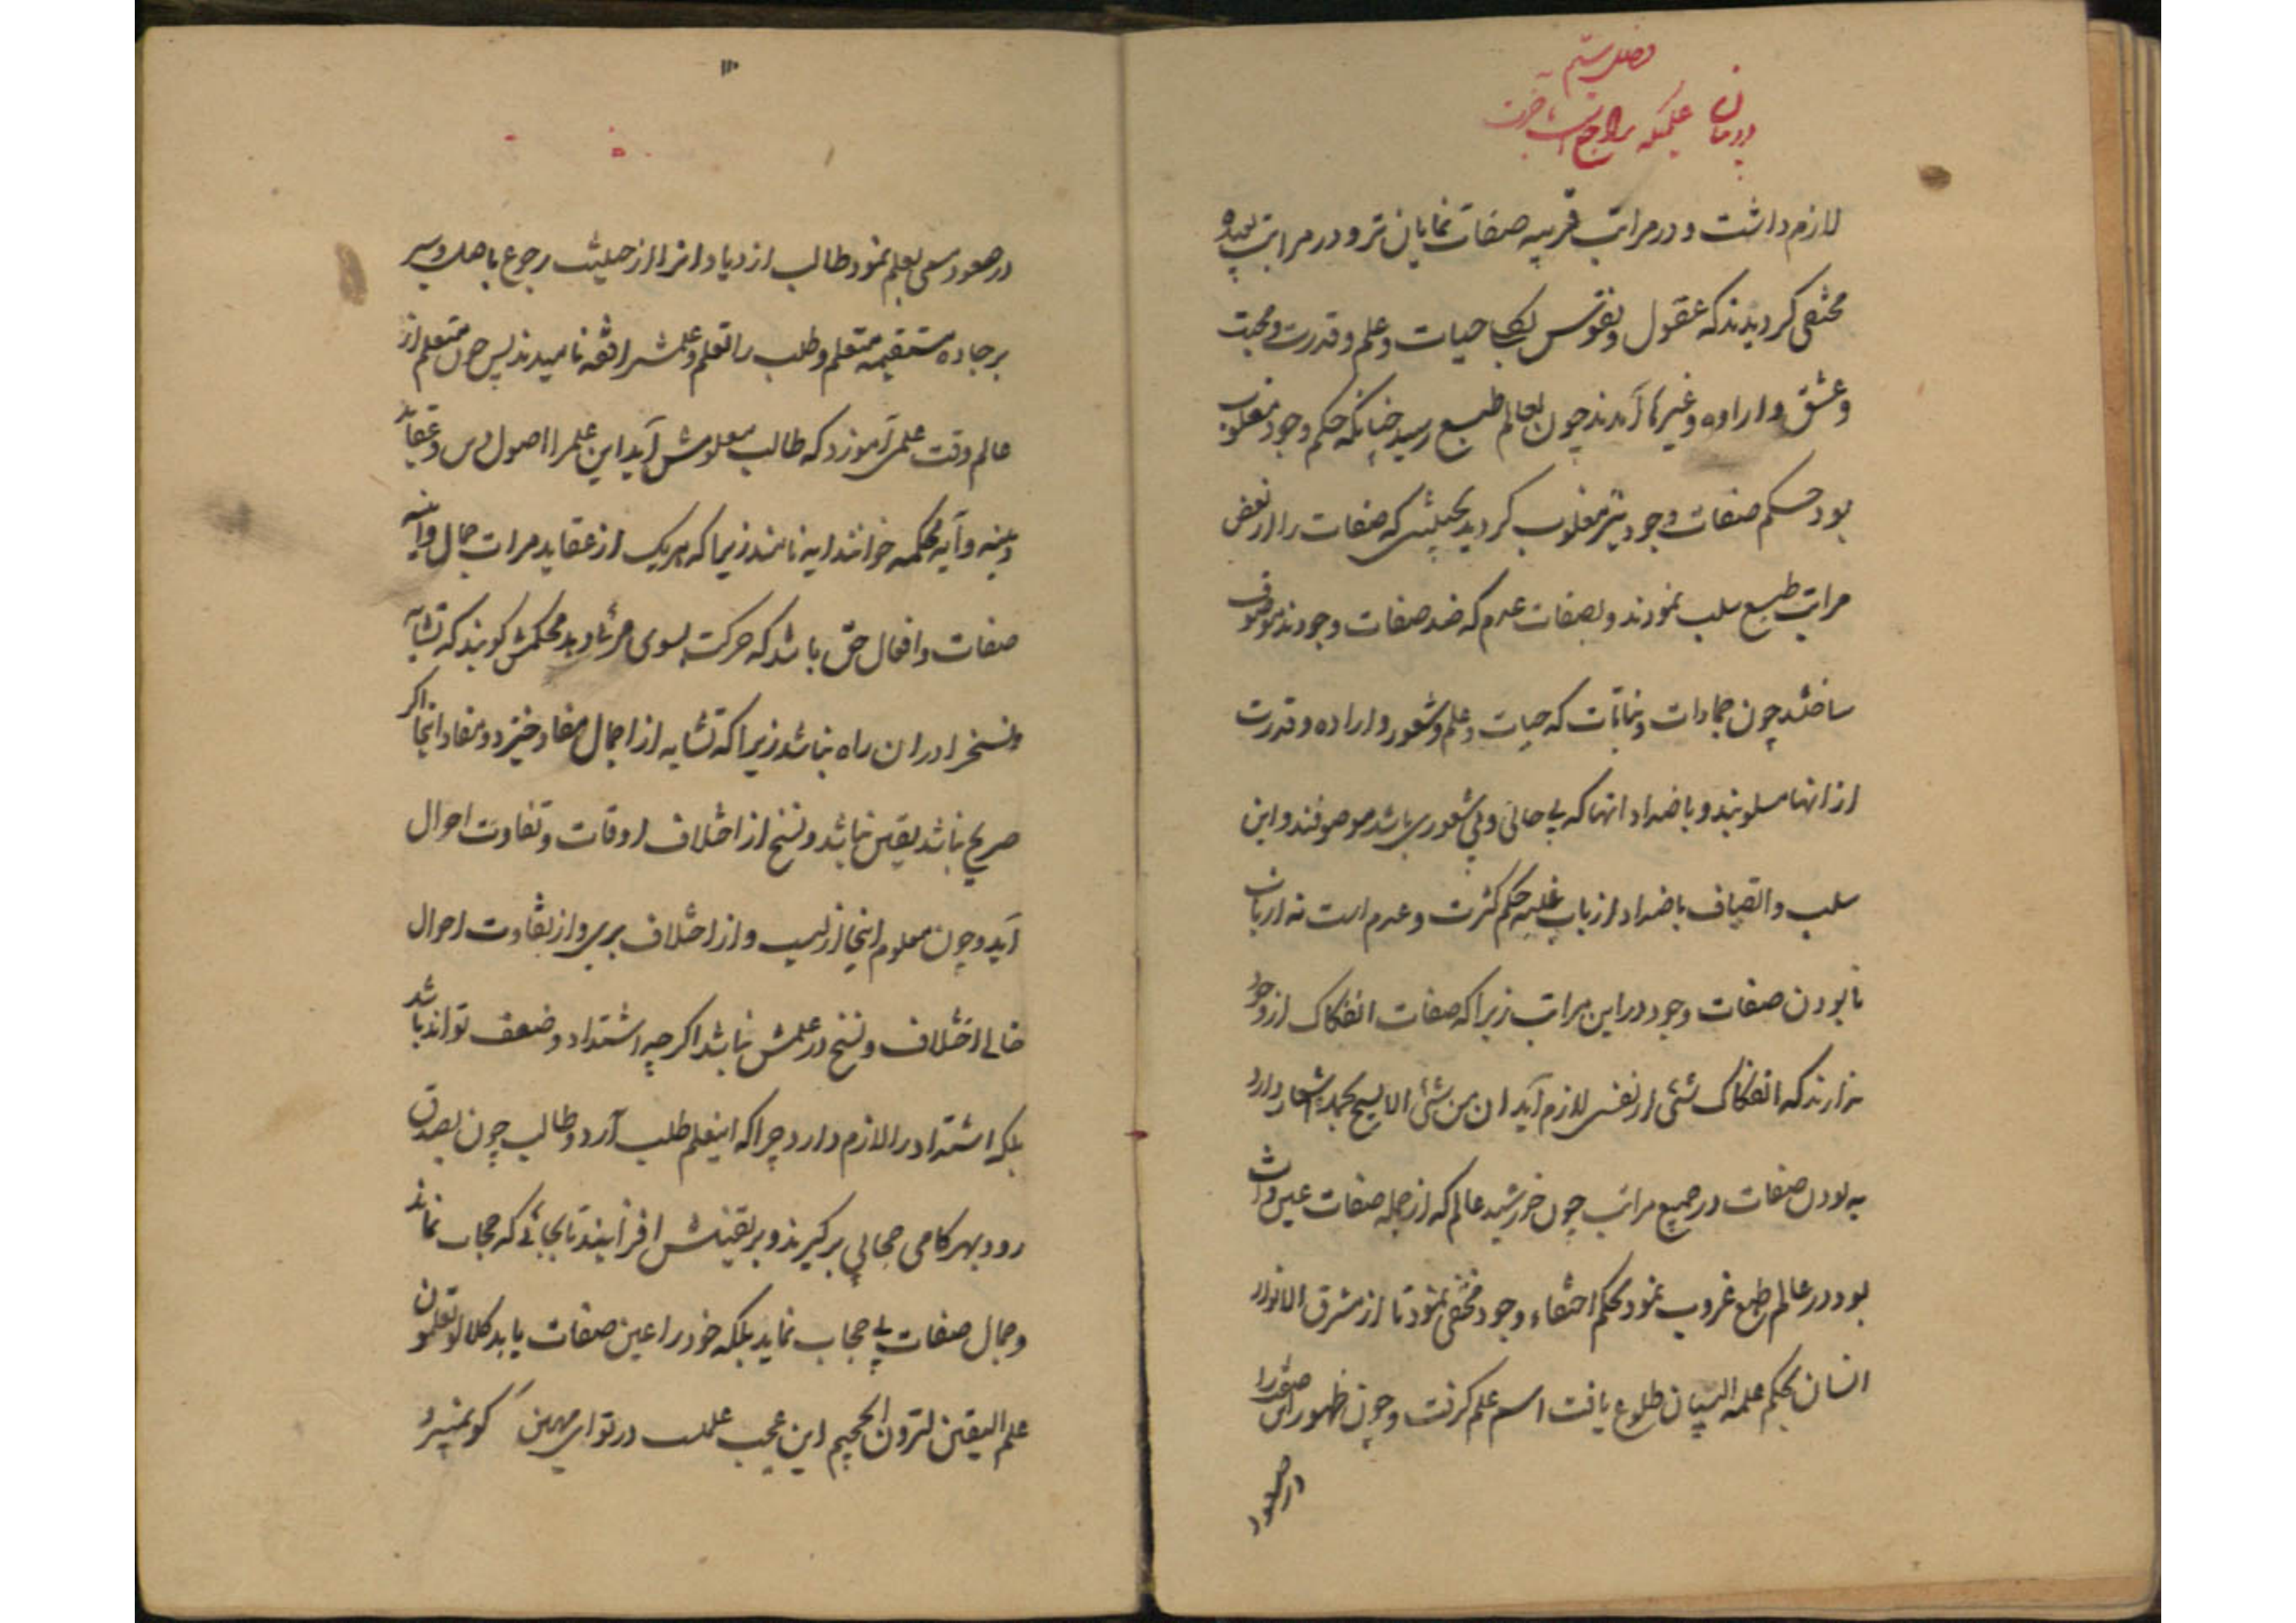 فصل ششم
در بیان علمیکه راجع است بآخرت
لازم داشت و در مراتب قریبه صفات نمایان تر و در مراتب بعیده
مختفی کردیدند که عقول و نفوس بکلها حیات و علم و قدرت و محبت
و عشق و اراده و غیرها آمدند چون بعالم طبع رسید چنانکه حکم وجود مغلوب
بود حکم صفات وجود نیز مغلوب کردید بحیثیتی که صفات را از بعض
مراتب طبع سلب نمودند و بصفات عدم که ضد صفات وجودند موصوف
ساختند چون جمادات و نباتات که حیات و علم و شعور و اراده و قدرت
از انها مسلوبند و باضداد انها که بی جانی و بی شعوری باشد موصوفند و این
سلب و اتصاف باضداد از باب غلبه حکم کثرت و عدم است نه از باب
نابودن صفات وجود در این مراتب زیرا که صفات انفکاک از وجود
ندارند که انفکاک شئی از نفس لازم آید ان من شئ الا یسبح بحمده اشعار دارد
به بودن صفات در جمیع مراتب چون خورشید عالم که از جمله صفات عین ذات
بود در عالم طبع غروب نمود بحکم اختفاء وجود مختفی نمود تا از مشرق الانوار
انسان بحکم علمه البیان طلوع یافت اسم علم کرفت و چون ظهور این صفت را
در صعود
۱۱۰
در صعود سعی بعلم نمود طالب ازدیاد انرا از حیثیت رجوع باصل و سیر
بر جاده مستقیمه متعلم و طلب را تعلم و علمش را فقه نامیدند پس چون متعلم از
عالم وقت علمی آموزد که طالب معلومش آید این علم را اصول دین و عقاید
دینیه و آیه محکمه خوانند ایه نامند زیرا که هریک از عقاید مرات جمال و آینه
صفات و افعال حق باشد که حرکت بسوی مرئی دهد محکمش کویند که تشابه
و نسخ را در ان راه نباشد زیرا که تشابه از اجمال مفاد خیزد و مفاد اینجا اکر
صریح نباشد یقین نباشد و نسخ از اختلاف اوقات و تفاوت احوال
آید و چون معلوم اینجا ازلیست و از اختلاف بری و از تفاوت احوال
خالی اختلاف و نسخ در علمش نباشد اکرچه اشتداد و ضعف تواند باشد
بلکه اشتداد را لازم دارد چرا که اینعلم طلب آرد و طالب چون بصدق
رود بهر کامی حجابی برکیرند و بر یقینش افزایند تا بجائی که حجاب نماند
و جمال صفات بی حجاب نماید بلکه خود را عین صفات یابد کلا لو تعلمون
علم الیقین لترون الجحیم این عجب علمیست در تو ای مهین